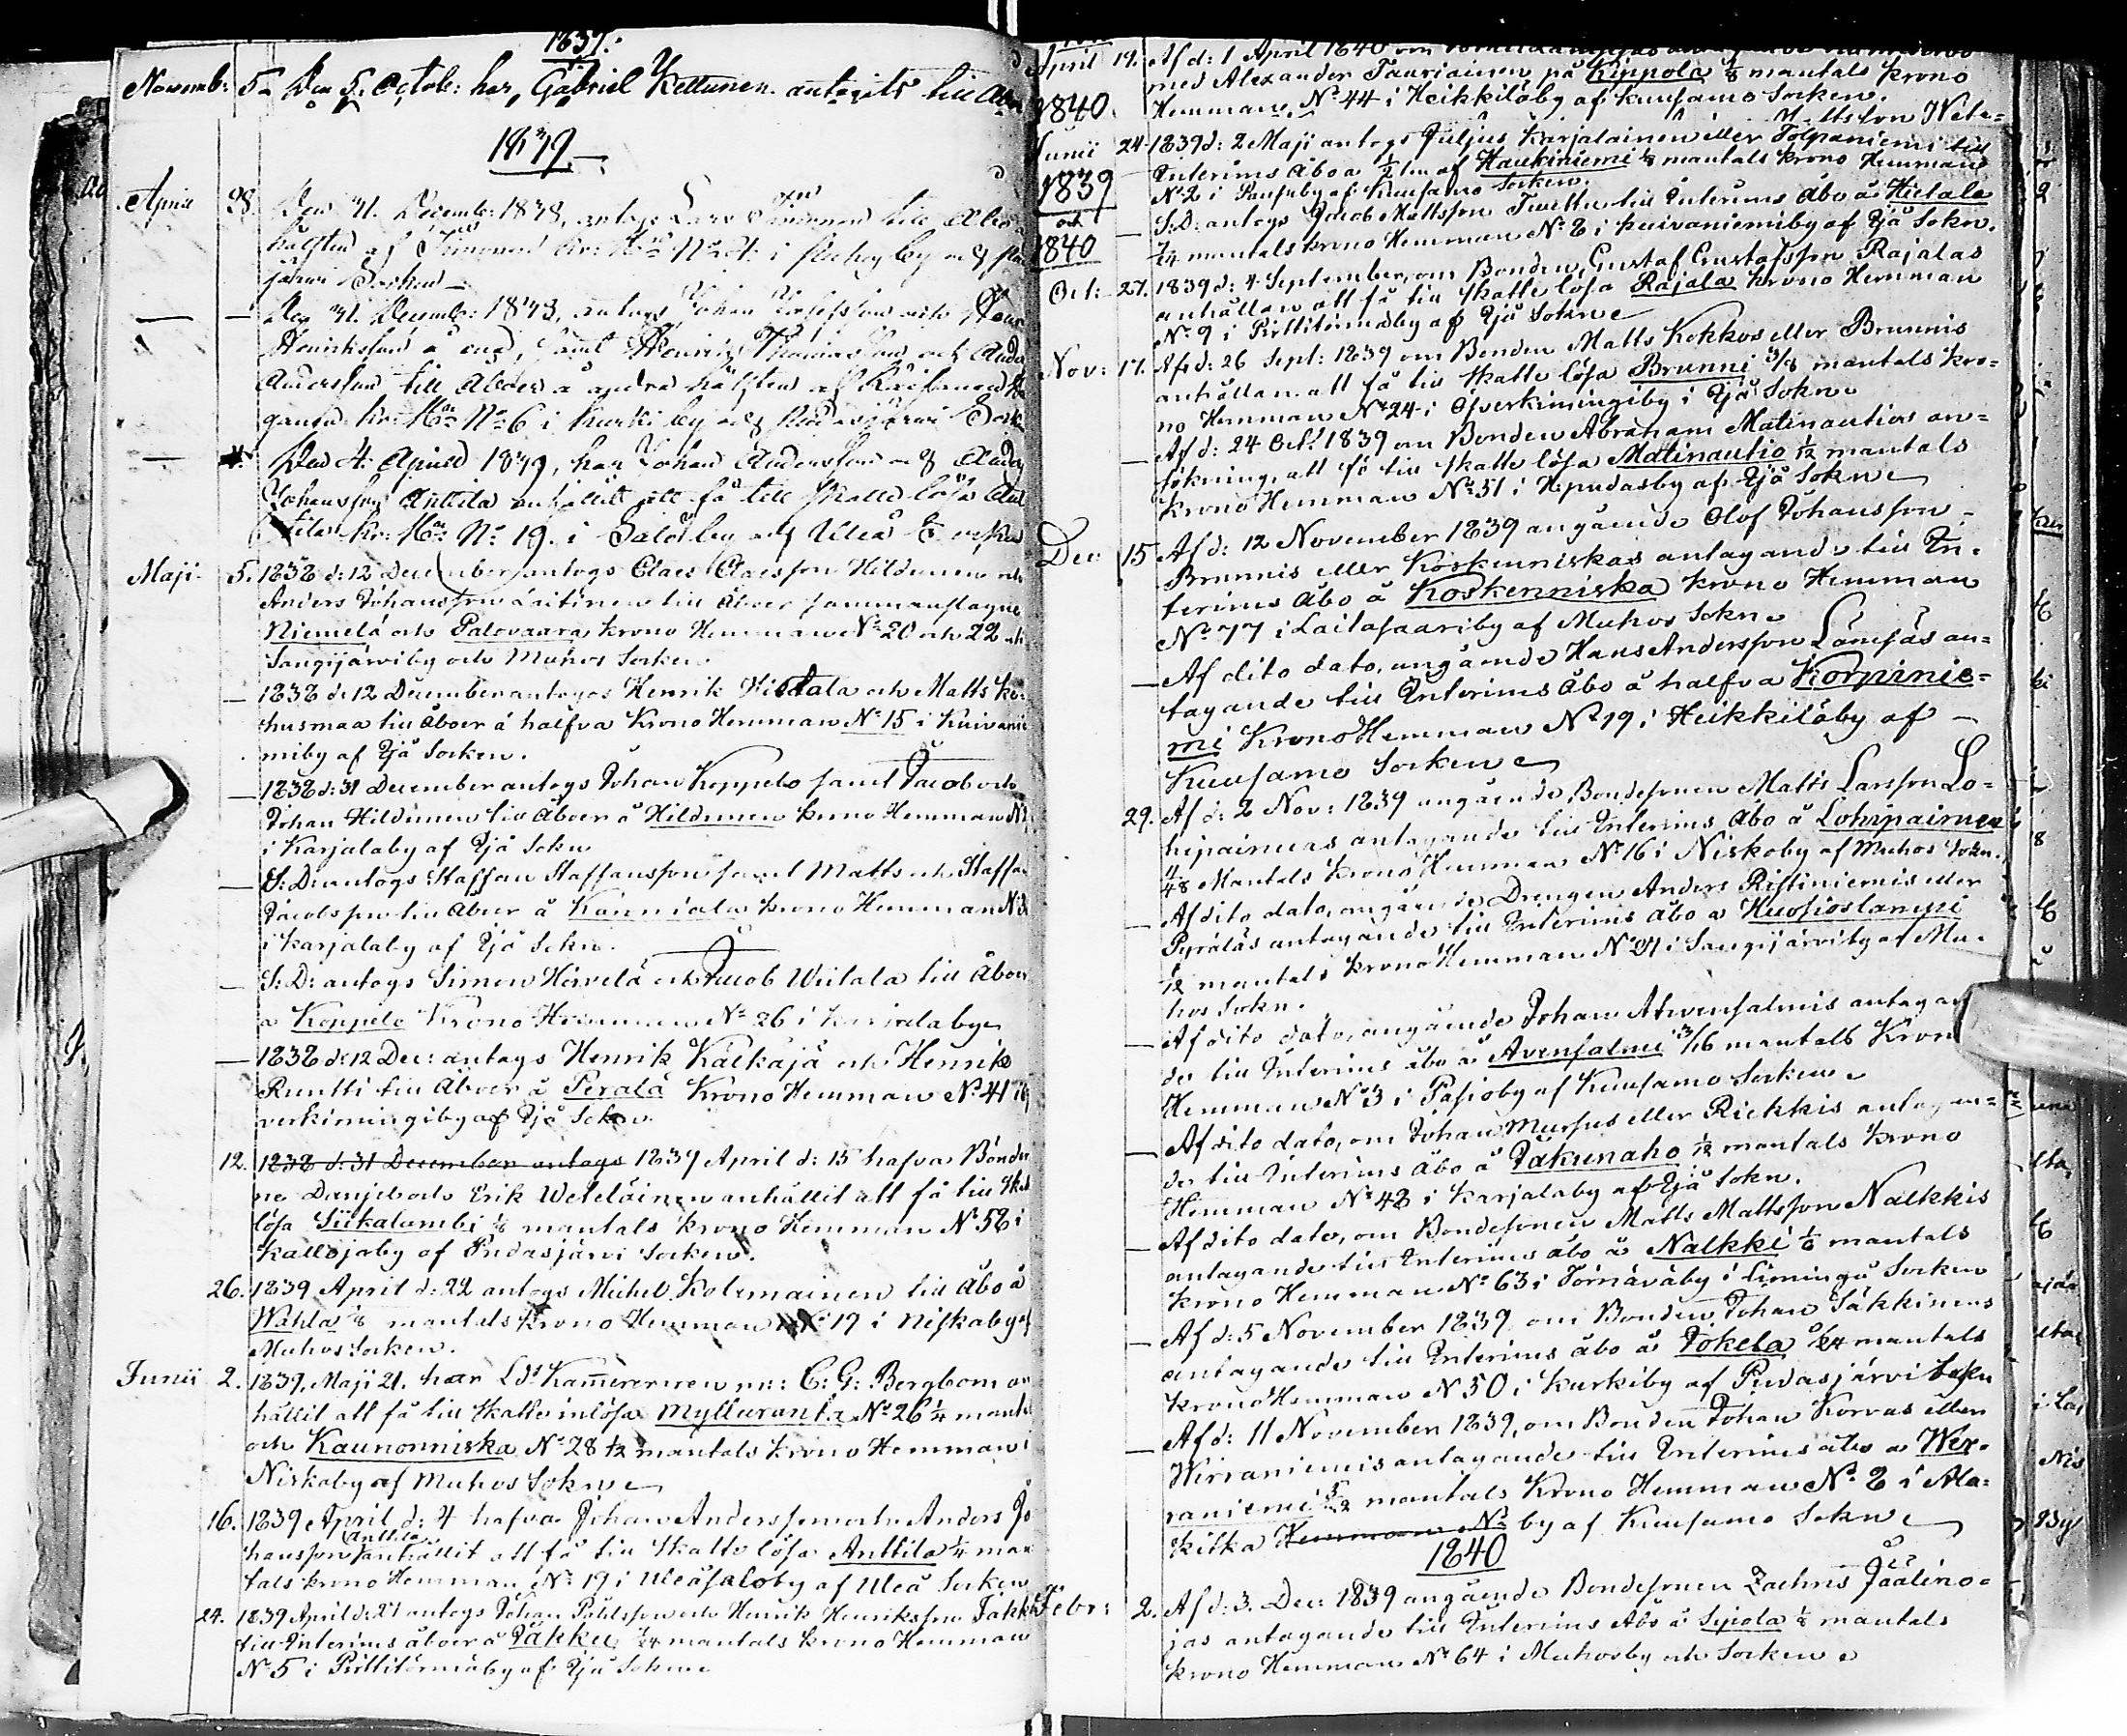 1837.
Novemb: 5. Den 5. Octob: har Gabriel Kettunen antagits till Åbo
1839
April 28. Den 31. Decemb: 1838, antogs Lars till Åbo
hälften af Kr: N: i by af
järvi Socken
Den 31. Decemb: 1838, antogs Johan och
Henriksson å ena, samt Henrik Thomasson och Ander
Andersson till Åboer å andra hälften af
Kr: Hn: No 6 i Kurki by af Pudasjärvi Sock
Den 4. April 1839, har Johan Andersson och Anders
Johansson Anttila anhållit att få till skatte lösa Ant
tila Kr: Hn: No 19. i Salo by af Uleå Socken
Maji. 5. 1838 d: 12 December antogs Claes Claesson Hildunen och
Anders Johansson Laitinen till Åboer sammanslagne
Niemelä och Palovaara krono Hemman No 20 och 22 i
Sangijärviby och Muhos Socken.
1838 d: 12 December antogos Henrik Hietala och Matts Ko-
husmaa till åboer å halfva Krono Hemman No 15 i Kuivanie
miby af Ijå Socken.
1838 d: 31 December antogs Johan Koppelo samt Jacob och
Johan Hildunen till Åboer å Hildunen krono Hemman N
i Karjalaby af Ijå Sokn
S: D: antogs Staffan Staffansson samt Matts och Staffan
Jacobsson till Åboer å Känniälä krono Hemman N
i Karjalaby af Ijå Sokn.
S: D: antogs Simon Hirvelä och Jacob Wiitala till Åboer
å Koppelo Krono Hemman No 26 i Karjalaby
1838 d: 12 Dec: antogs Henrik Kälkäjä och Henrik
Runtti till Åboer å Perälä Krono Hemman No 41 i Öf
verkiimingiby af Ijå Sokn.
12. 1838 d: 31 December antogs 1839 April d: 15 hafva Bönder
ne Daniel och Erik Weteläinen anhållit att få till Skatt
lösa Siikalambi 1/8 mantals krono Hemman No 58 i
Kallojaby af Pudasjärvi Socken.
26. 1839 April d: 22 antogs Michel Kolemainen till Åbo å
Wahla 1/8 mantals Krono Hemman No 17 i Niskaby af
Muhos Socken.
Junii 2. 1839, Maji 21. har Lds Kamereraren m: m: C: G: Bergbom an
hållit att få till Skatte inlösa Myllyranta No 26 1/4 mantal
och Kaunonniska No 28 1/2 mantals krono Hemman i
Niskaby af Muhos Sokn
16. 1839 April d: 4 hafva Johan Andersson och Anders Jo
hansson Anttila anhållit att få till Skatte lösa Anttila 1/4 man
tals krono Hemman No 19 i Uleåsaloby af Uleå Socken
24. 1839 April d: 27 antogs Johan Påhlsson och Henrik Henriksson Jäkku
till Interims åboer å Jäkku 1/24 mantals krono Hemman
No 5 i Pirttitörmäby af Ijå Sokn.
April 19. Af d: 1 April 1840 om
med Alexander Tauriainen på Kippola 1/8 mantals krono
1840. Hemman No 44 i Heikkiläby af Kuusamo Socken.
Mattsson Wete=
Junii 24. 1839 d: 2 Maji antogs Julius Karjalainen eller Tolpaniemi till
Interims åbo å 1/2 len af Haukiniemi 1/8 mantals krono Hemman
1839 No 2 i by af Kuusamo Socken.
och S: D: antogs Jacob Mattsson Tuuttu till Interims Åbo å Hietala
1840 1/24 mantals krono Hemman No 8 i Kuivaniemiby af Ijå Sokn.
Oct: 27. 1839 d: 4 September, om Bonden Gustaf Gustafsson Rajalas
anhållan att få till skatte lösa Rajala krono Hemman
No 9 i Pirttitörmäby af Ijå Sokn
Nov: 17. Af d: 26 Sept: 1839 om Bonden Matts Kokkos eller Brunnis
anhållan att få till skatte lösa Brunni 3/8 mantals kro=
no Hemman No 24 i Öfverkiimingiby i Ijå Sokn
Af d: 24 Oct: 1839 om Bonden Abraham Matinautios an=
sökning, att få till skatte lösa Matinautio 1/12 mantals
krono Hemman No 51 i Hepudasby af Ijå Sokn
Dec 15 Af d: 12 November 1839 angående Olof Johansson
Brunnis eller Koskenniskas antagande till In=
terims Åbo å Koskenniska krono Hemman
No 77 i Laitasaariby af Muhos Sokn
Af dito dato, angående Hans Andersson Lämsäs an=
tagande till Interims Åbo å halfva Korpinie=
mi Krono Hemman No 19 i Heikkiläby af
Kuusamo Socken
29. Af d: 2 Nov: 1839 angående Bondesonen Matts Larsson Lo=
hipainas antagande till Interims Åbo å Lohipainen
1/48 Mantals krono Hemman No 16 i Niskoby af Muhos Sokn.
Af dito dato, angående Drengen Anders Ristiniemis eller
Pyräläs antagande till Interims Åbo å Huosioslampi
1/12 mantals krono Hemman No 21 i Sangijärviby af Mu=
hos Sokn.
Af dito dato, angående Johan Ahvensalmis antagan
de till Interims åbo å Avensalmi 3/16 mantals Krono
Hemman No 3 i Posioby af Kuusamo Socken
Af dito dato, om Johan Mursus eller Riekkis antagan=
de till Interims åbo å Jäkunaho 1/12 mantals krono
Hemman No 48 i Karjalaby af Ijå Sokn.
Af dito dato, om Bondesonen Matts Mattsson Nalkkis
antagande till Interims åbo å Nalkki 1/6 mantals
krono Hemman No 63 i Törnäväby i Limingå Socken
Af d: 5 November 1839 om Bonden Johan Säkkinens
antagande till Interims åbo å Jokela 5/24 mantals
krono Hemman No 50 i Kurkiby af Pudasjärvi Sokn
Af d: 11 November 1839, om Bonden Johan Korvas eller
Wirraniemis antagande till Interims åbo å Wer=
raniemi 5/32 mantals Krono Hemman No 2 i Ala=
kitka Hemman No by af Kuusamo Sokn
1840
Febr: 2. Af d: 3. Dec: 1839 angående Bondesonen Zachris Jäälino=
jas antagande till Interims Åbo å Syiola 1/8 mantals
krono Hemman No 64 i Muhosby och Socken